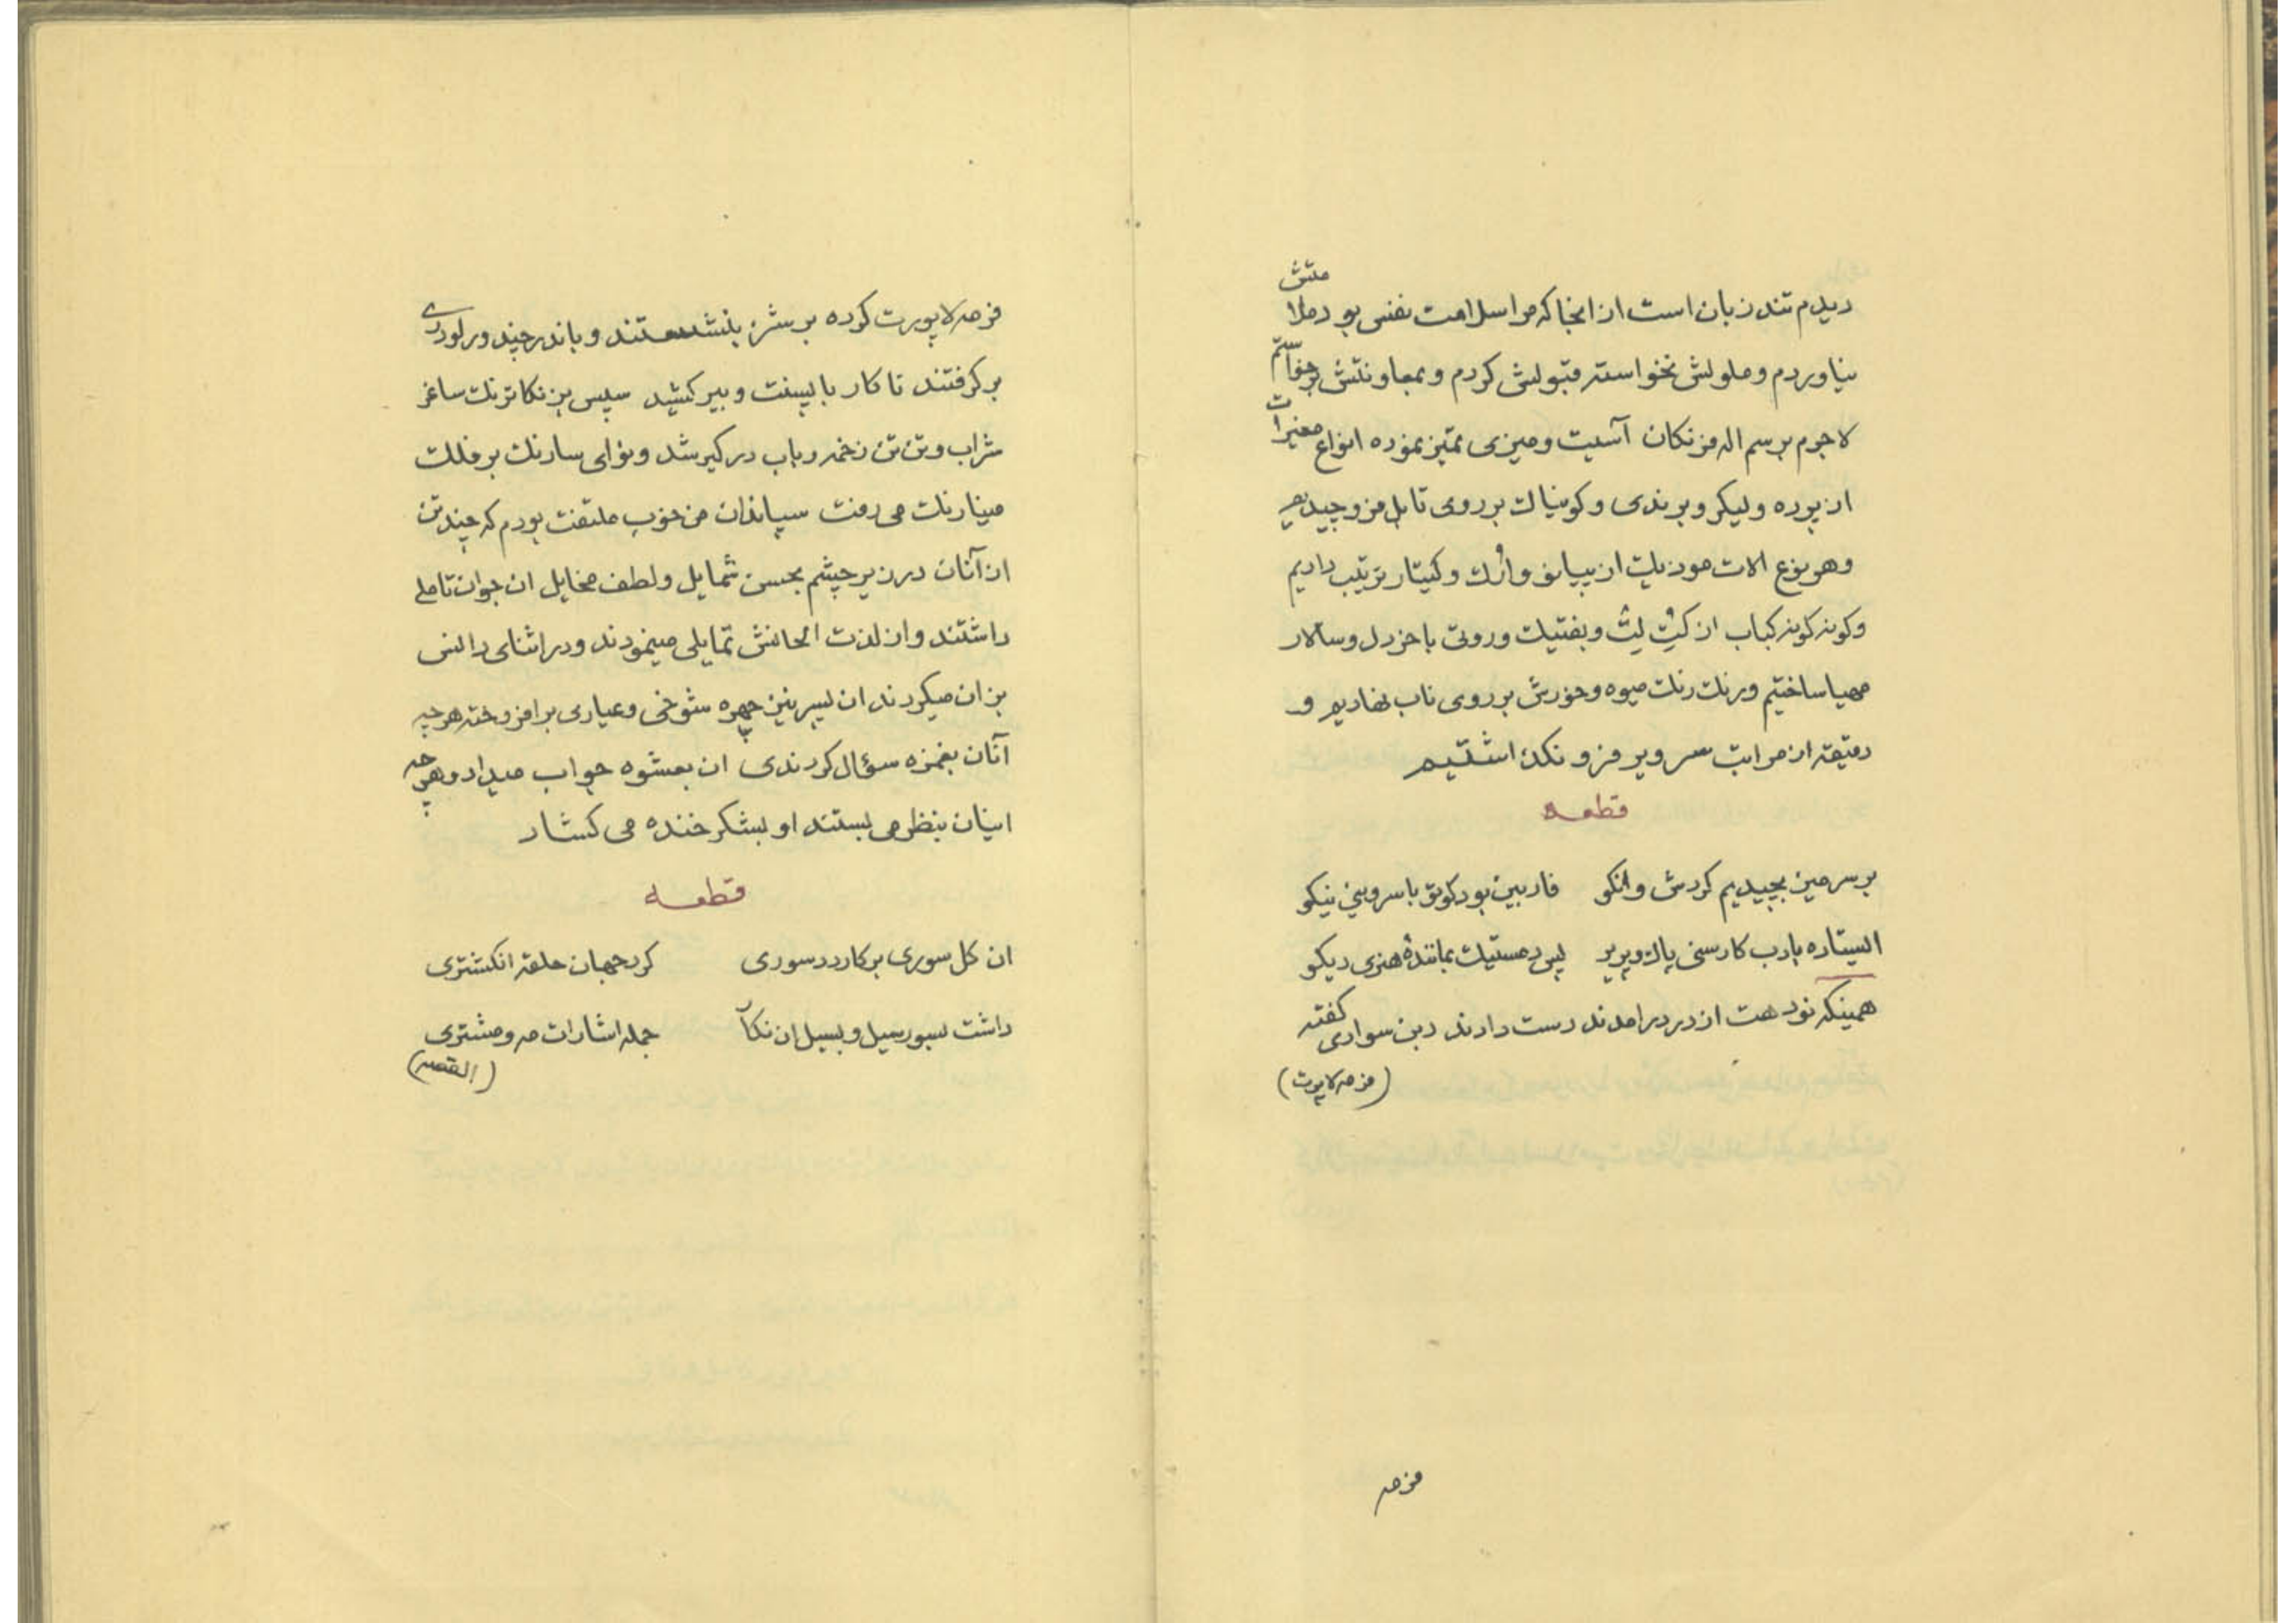 دیدم تند زبان است از انجا که مرا سلامت نفس بود ملامتش
نیاوردم و ملولش نخواسته قبولش کردم و بمعاونتش برخواستم
لاجرم برسم اله فرنکان آسیت و میزی تمیز نموده انواع مغیرات
از پورده و لیکر و برندی و کونیاک بر روی تابل فرو چیدیم
وهر نوع الات موزیک از پیانو وارک و کیتار ترتیب دادیم
وکونه کونه کباب از کتِ لت و بفتیک وروتی با خردل و سالار
مهیا ساختیم ورنک رنک میوه وخورش بر روی ناب نهادیم و
دقیقه از مراتب سرویر فرو نکذاشتیم
قطعه
بر سر میز بچیدیم کردش وانکو فاربین بود کوتو با سروسی نیکو
السیتاره بارب کارسی پاک وپریر پس دمستیک بمانندهٔ هنری دیکو
همینکه نود هت از در درامدند دست دادند دبن سواری کفته
(فرمه لاپورت)
فرمه
فرمه لاپورت کرده بر شز بنشستند و باندرچند ور لودری
بر کرفتند تا کار با پسنت و بیر کشید سپس بزنکاترنک ساغر
شراب وتن تن زخمه رباب در کیر شد ونوای سارنک بر فلک
مینارنک می رفت سپاندان من خوب ملتفت بودم که چند تن
از آنان در زیر چشم بحسن شمایل ولطف مخایل ان جوان تاملی
داشتند واز لذت الحانش تمایلی مینمودند ودر اثنای دانس
بزان میکردند ان پسر نیز چهره شوخی وعیاری برافروخته هرچه
آنان بغمزه سؤال کردندی ان بعشوه جواب میداد وهرچه
اینان بنظر می بستند او بشکر خنده می کشاد
قطعه
ان کل سوری بر کاردد سوری کرد جهان حلقه انکشتری
داشت بسورسیل وبسیل ان نکآ جمله اشارات مه ومشتری
(القصه)